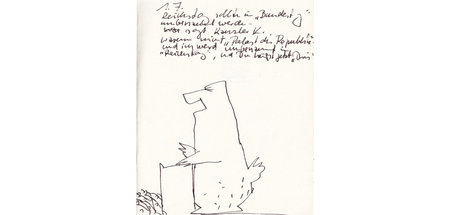 1. 7.
Reichstag soll in „Bundestag“
umbenannt werden.
sagt Kanzler K.
warum nicht „Palast der Republik“
und ich werd umbenannt
„Reichstag“, und Du heißt jetzt